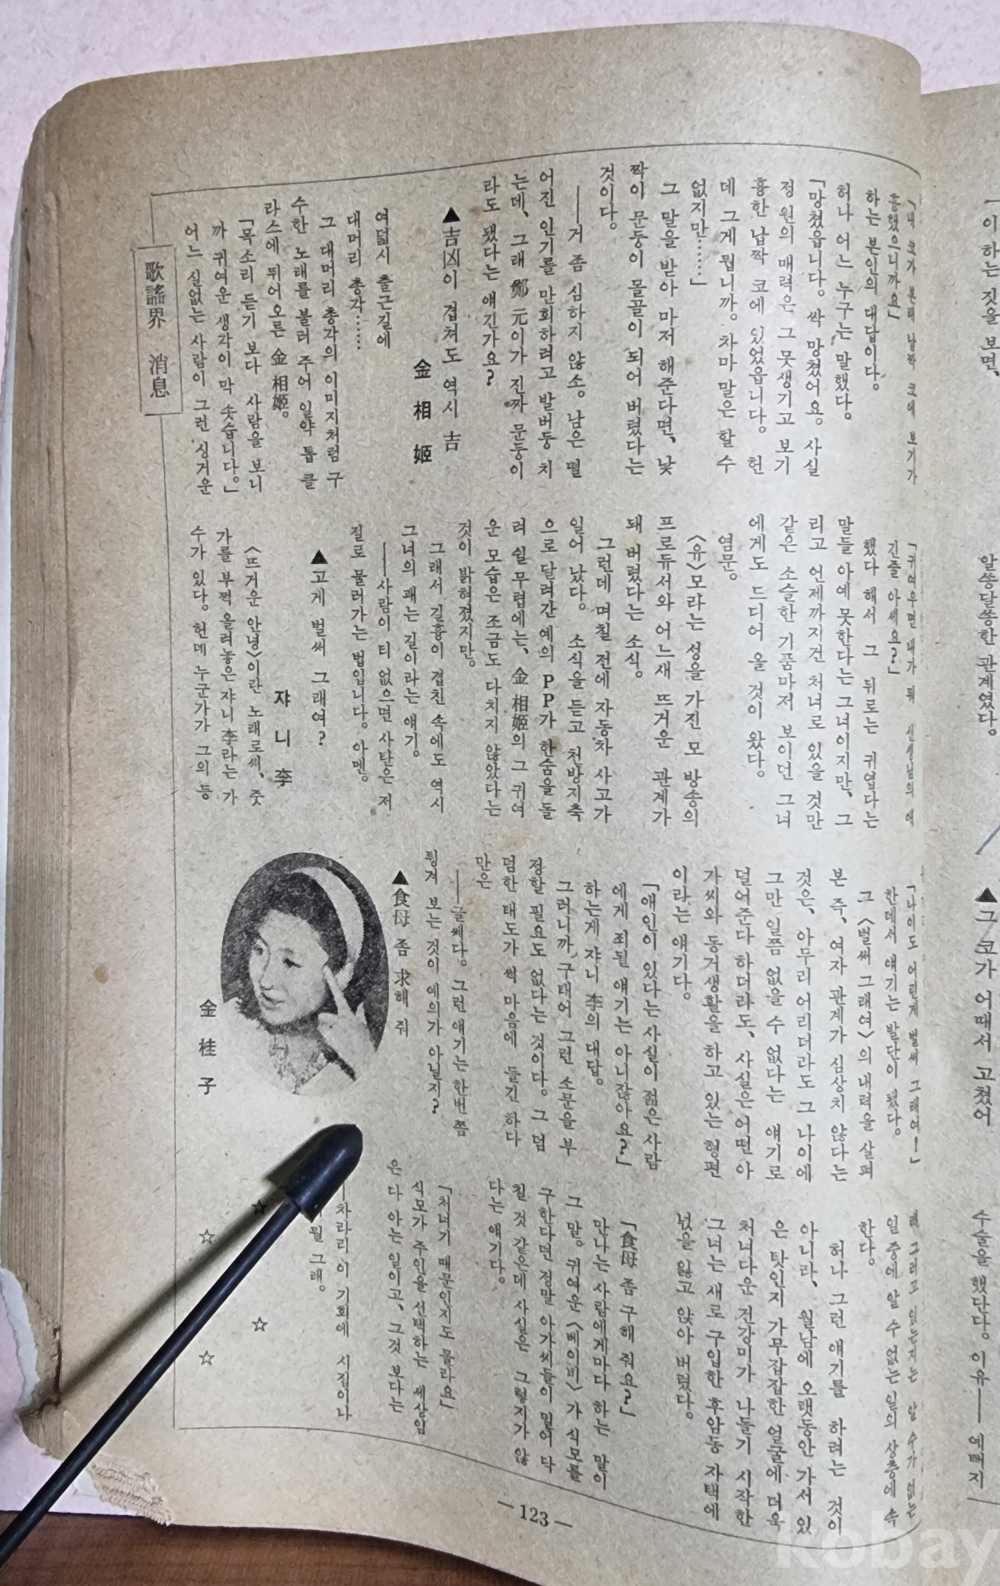 이 하는 짓을 보면,
알쏭달쏭한 관계였다.
▲그 코가 어때서 고쳤어
수술을 했단다. 이유——예뻐지
「내 코가 본래 납작 코에 보기가
흉했으니까요」
하는 본인의 대답이다.
허나 어느 누구는 말했다.
「망쳤읍니다. 싹 망쳤어요. 사실
정 원의 매력은 그 못생기고 보기
흉한 납짝 코에 있었읍니다. 헌
데 그게 뭡니까. 차마 말은 할 수
없지만……」
그 말을 받아 마저 해준다면, 낯
짝이 문둥이 몰골이 되어 버렸다는
것이다.
——거 좀 심하지 않소. 남은 떨
어진 인기를 만회하려고 발버둥 치
는데, 그래 鄭 元이가 진짜 문둥이
라도 됐다는 얘긴가요?
▲吉凶이 겹쳐도 역시 吉
金 相 姬
여덟시 출근길에
대머리 총각……
그 대머리 총각의 이미지처럼 구
수한 노래를 불러 주어 일약 톱 클
라스에 뛰어오른 金 相姬.
「목소리 듣기 보다 사람을 보니
까 귀여운 생각이 막 솟습니다.」
어느 실없는 사람이 그런 싱거운
歌謠界 消息
「귀여우면 내가 뭐 선생님의 애
긴줄 아세요?」
했다 해서 그 뒤로는 귀엽다는
말들 아예 못한다는 그녀이지만, 그
리고 언제까지건 처녀로 있을 것만
같은 소슬한 기품마저 보이던 그녀
에게도 드디어 올 것이 왔다.
염문.
〈유〉모라는 성을 가진 모 방송의
프로듀서와 어느새 뜨거운 관계가
돼 버렸다는 소식.
그런데 며칠 전에 자동차 사고가
일어 났다. 소식을 듣고 천방지축
으로 달려간 예의 PP가 한숨을 돌
려 쉴 무렵에는, 金 相姬의 그 귀여
운 모습은 조금도 다치지 않았다는
것이 밝혀졌지만.
그래서 길흉이 겹친 속에도 역시
그녀의 괘는 길이라는 얘기.
——사람이 티 없으면 사탄은 저
절로 물러가는 법입니다. 아멘.
▲고게 벌써 그래여?
쟈 니 李
〈뜨거운 안녕〉이란 노래로써, 줏
가를 부쩍 올려놓은 쟈니 李라는 가
수가 있다. 헌데 누군가가 그의 등
「나이도 어린게 벌써 그래여!」
한데서 얘기는 발단이 됐다.
그 〈벌써 그래여〉의 내력을 살펴
본 즉, 여자 관계가 심상치 않다는
것은, 아무리 어리더라도 그 나이에
그만 일쯤 없을 수 없다는 얘기로
덜어준다 하더라도, 사실은 어떤 아
가씨와 동거생활을 하고 있는 형편
이라는 얘기다.
「애인이 있다는 사실이 젊은 사람
에게 죄될 얘기는 아니잖아요?」
하는게 쟈니 李의 대답.
그러니까 구태어 그런 소문을 부
정할 필요도 없다는 것이다. 그 덤
덤한 태도가 썩 마음에 들긴 하다
만은
——글쎄다. 그런 얘기는 한번 쯤
튕겨 보는 것이 예의가 아닐지?
▲食母 좀 求해 줘
金 桂 子
일 중에 알 수 없는 일의 상층에 속
한다.
허나 그런 얘기를 하려는 것이
아니라, 월남에 오랫동안 가서 있
은 탓인지 가무잡잡한 얼굴에 더욱
처녀다운 건강미가 나돌기 시작한
그녀는 새로 구입한 후암동 자택에
넋을 잃고 앉아 버렸다.
「食母 좀 구해 줘요?」
만나는 사람에게마다 하는 말이
그 말. 귀여운 〈베이비〉가 식모를
구한다면 정말 아가씨들이 밀어 닥
칠 것 같은데 사실은 그렇지가 않
다는 얘기다.
「처녀기 때문인지도 몰라요」
식모가 주인을 선택하는 세상임
은 다 아는 일이고, 그것 보다는
차라리 이 기회에 시집이나
뭘 그래.
☆ ☆ ☆ ☆
—123—
kobay